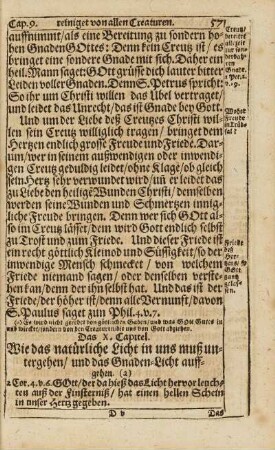 Cap. 9. reiniget von allen Creaturen. 571
auffnimmt / als eine Bereitung zu sondern ho-
hen Gnaden GOttes: Denn kein Creutz ist / es
bringet eine sondere Gnade mit sich. Daher ein
heil. Mann saget: GOtt grüsse dich lauter bitter
Leiden voller Gnaden. Denn S. Petrus spricht:
So ihr um GOttes willen das Ubel vertraget /
und leidet das Unrecht / das ist Gnade bey Gott.
Und um der Liebe deß Creutzes Christi wil-
len sein Creutz williglich tragen / bringet dem
Hertzen endlich grosse Freude und Friede. Dar-
um / wer in seinem außwendigen oder inwendi-
gen Creutz gedultig leidet / ohne Klage / ob gleich
sein Hertz sehr verwundet wird / uñ er leidet das
zu Liebe den heiligē Wunden Christi / demselben
werden seine Wunden und Schmertzen innig-
liche Freude bringen. Denn wer sich GOtt al-
so im Creutz lässet / dem wird Gott endlich selbst
zu Trost und zum Friede. Und dieser Friede ist
ein recht göttlich Kleinod und Süssigkeit / so der
inwendige Mensch schmecket / von welchem
Friede niemand sagen / oder denselben verste-
hen kan / denn der ihn selbst hat. Und das ist der
Friede / der höher ist / denn alle Vernunft / davon
S. Paulus saget zum Phil. 4. v. 7.
Das X. Capitel.
Wie das natürliche Licht in uns muß un-
tergehen / und das Gnaden-Licht auff-
gehen. (a)
2 Cor. 4. v. 6. GOtt / der da hieß das Licht hervor leuch-
ten auß der Finsterniß / hat einen hellen Schein
in unser Hertz gegeben.
D v Das
Woher
Freude
Friede